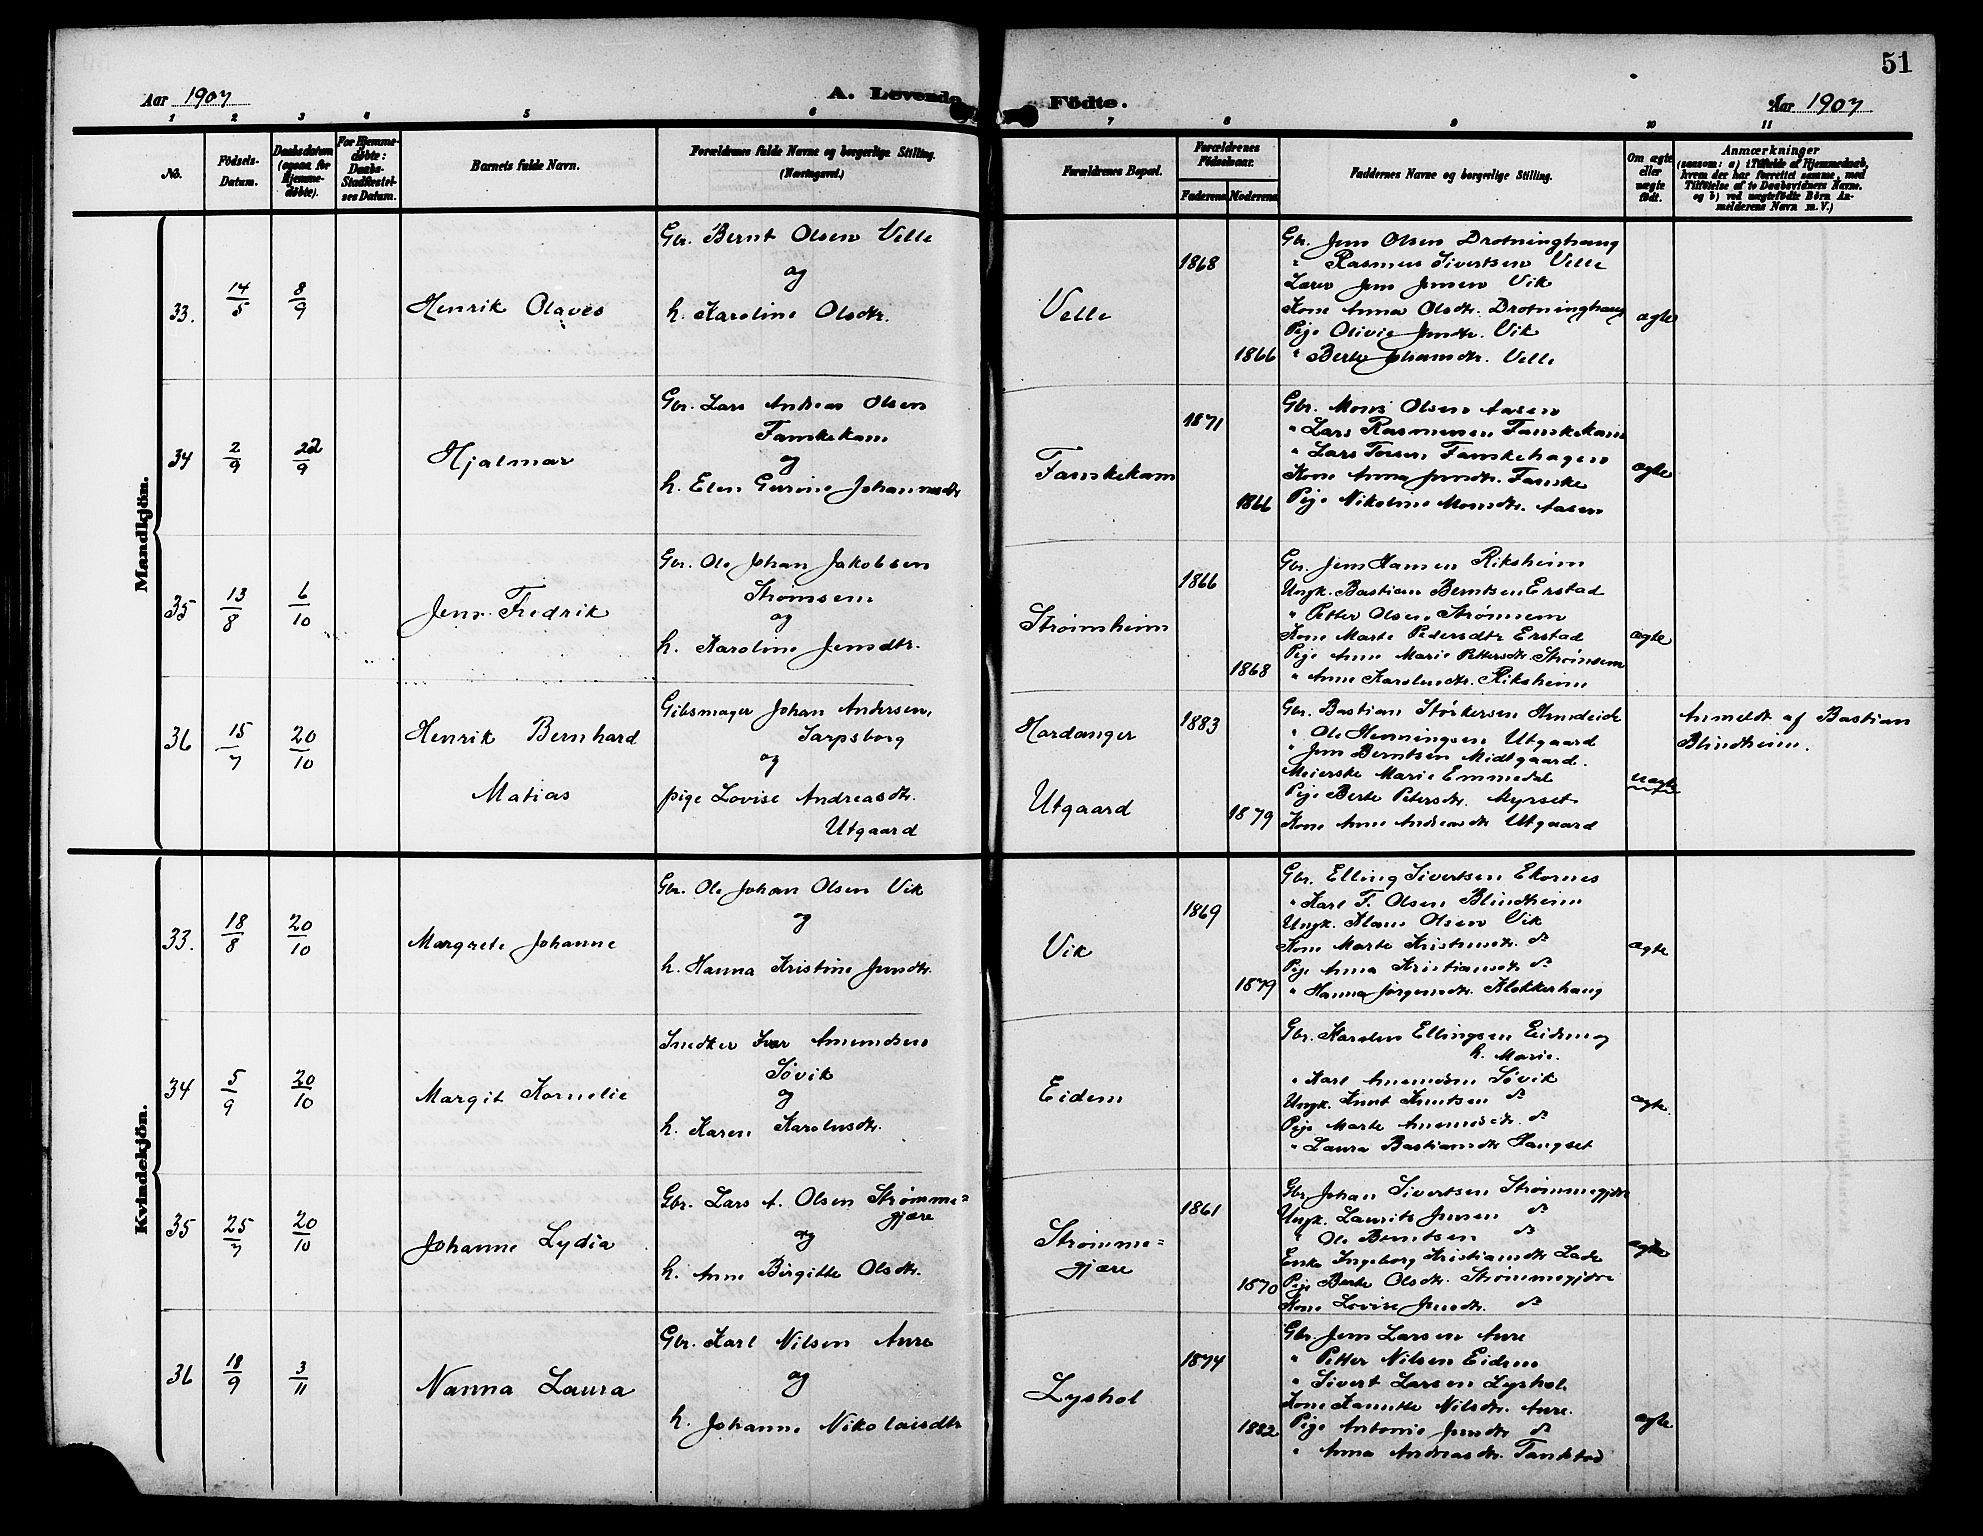 51
Aar 1907
A. Levende Födte.
Aar 1907
1 2 3 4 5 6 7 8 9 10 11
No.
Födsels-
Datum.
Daabsdatum
(ogsaa for
Hjemme-
døbte).
For Hjemme-
døbte:
Daabs-
Stadfæstel-
ses Datum.
Barnets fulde Navn.
Forældrenes fulde Navne og borgerlige Stilling.
(Næringsvei.)
Forældrenes Bopæl.
Forældrenes
Födselsaar.
Faderens Moderens
Faddernes Navne og borgerlige Stilling.
Om ægte
eller
uægte
født.
Anmærkninger
(saasom: a) i Tilfælde af Hjemmedaab,
hvem der har forrettet samme, med
Tilføielse af to Daabsvidners Navne.
og b) ved uægtefödte Börn An-
melderens Navn m. V.)
Mandkjön.
33.
14/5
8/9
Henrik Olaves
Gbr. Bernt Olsen Velle
og
h. Karoline Olsdtr.
Velle
1868
1866
Gbr. Jens Olsen Drotninghaug
" Rasmus Sivertsen Velle
Lærer Jens Jensen Vik
Kone Anna Olsdtr. Drotninghaug
Pige Olivie Jensdtr. Vik
" Berte Johansdtr. Velle
ægte
34
2/9
22/9
Hjalmar
Gbr. Lars Andreas Olsen
Fauskekam
og
h. Elen Gurine Johannesdtr
Fauskekam
1871
1866
Gbr. Mons Olsen Aasen
" Lars Rasmussen Fauskekam
" Lars Torsen Fauskehagen
Kone Anna Jensdtr. Fauske
Pige Nikoline Monsdtr. Aasen
ægte
35
13/8
6/10
Jens Fredrik
Gbr. Ole Johan Jakobsen
Strømsem
og
h. Karoline Jensdtr.
Strømsheim
1866
1868
Gbr. Jens Hansen Riksheim
Ungk. Bastian Berntsen Erstad
" Petter Olsen Strømsem
Kone Marte Pedersdtr Erstad
Pige Anne Marie Pettersdtr. Strømsem
" Anne Karolusdtr. Riksheim
ægte
36
15/7
20/10
Henrik Bernhard
Matias
Gibsmager Johan Andersen,
Sarpsborg
og
pige Lovise Andreasdtr.
Utgaard
Hardanger
Utgaard
1883
1879
Gbr. Bastian Størkersen Hundeide
" Ole Henningsen Utgaard
" Jens Berntsen Midtgaard.
Meierske Marie Emmedal
Pige Berte Petersdtr. Myrset
Kone Anne Andreasdtr Utgaard
uægte
Anmeldt af Bastian
Blindheim.
Kvindekjön.
33.
18/8
20/10
Margrete Johanne
Gbr. Ole Johan Olsen Vik
og
h. Hanna Kristine Jensdtr.
Vik
1869
1879
Gbr. Elling Sivertsen Ekornes
" Karl T. Olsen Blindheim
Ungk. Klaus Olsen Vik
Kone Marte Kristiansdtr. do
Pige Anna Kristiansdtr do
" Hanna Jørgensdtr. Klokkerhaug
ægte
34
5/9
20/10
Margit Kornelie
Snedker Ivar Amundsen
Søvik
og
h. Karen Karolusdtr.
Eidem
Gbr. Karolus Ellingsen Eidem og
h. Marie.
" Karl Amundsen Søvik
Ungk. Knut Knutsen do
Pige Marte Amundsdtr. do
" Laura Bastiansdtr Haugset
ægte
35
25/7
20/10
Johanne Lydia
Gbr. Lars A. Olsen Strømme=
gjære
og
h. Anne Birgitte Olsdtr.
Strømme=
gjære
1861
1870
Gbr. Johan Sivertsen Strømmegjære
Ungk. Laurits Jensen do
" Ole Berntsen do
Enke Ingeborg Kristiansdtr Lade
Pige Berte Olsdtr. Strømmegjære
Kone Lovise Jensdtr. do
ægte
36
18/9
3/11
Nanna Laura
Gbr. Karl Nilsen Aure
og
h. Johanne Nikolaisdtr
Lyshol
1874
1882
Gbr. Jens Larsen Aure
" Petter Nilsen Eidem
" Sivert Larsen Lyshol.
Kone Nilsdtr. Aure.
Pige Antonie Jensdtr do
" Anna Andreasdtr. Tandstad
ægte